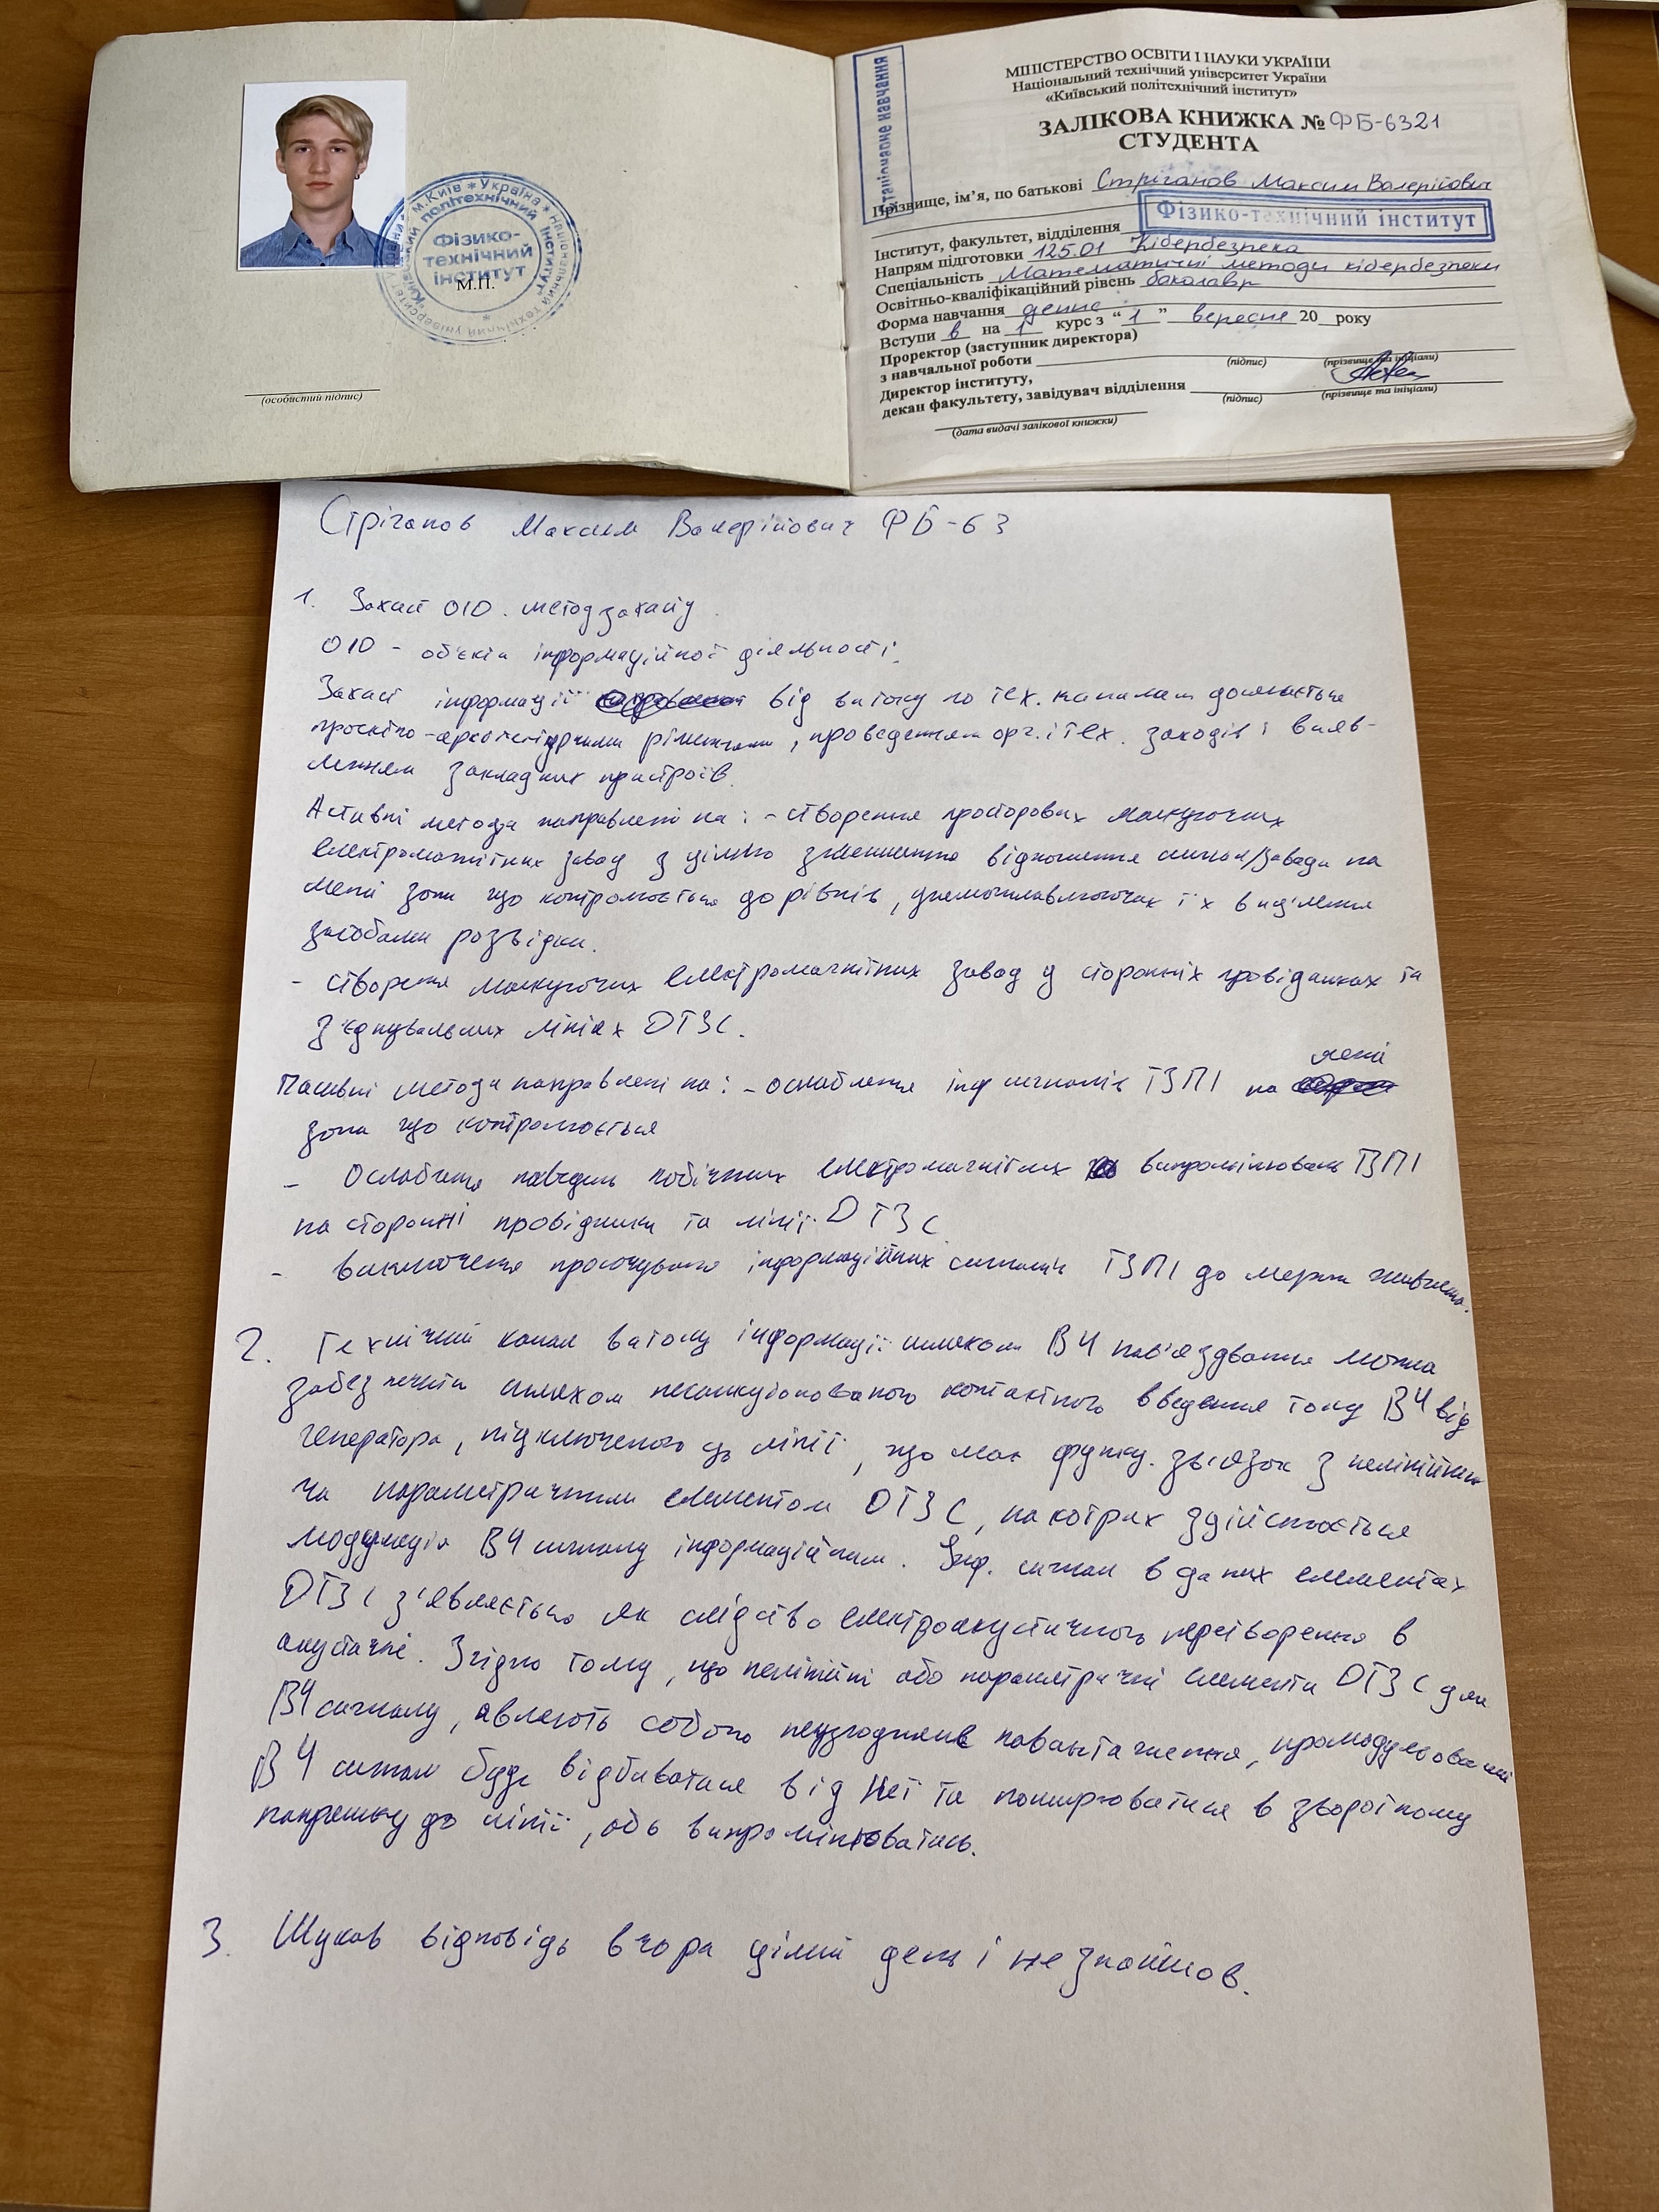 МІНІСТЕРСТВО ОСВІТИ І НАУКИ УКРАЇНИ
Національний технічний університет України
«Київський політехнічний інститут»
ЗАЛІКОВА КНИЖКА № ФБ-6321
СТУДЕНТА
Прізвище, ім’я, по батькові Стріганов Максим Валерійович
Інститут, факультет, відділення Фізико-технічний інститут
Напрям підготовки 125.01 Кібербезпека
Спеціальність Математичні методи кібербезпеки
Освітньо-кваліфікаційний рівень бакалавр
Форма навчання денна
Вступи в на 1 курс з “ 1 ” вересня 20 року
Проректор (заступник директора)
з навчальної роботи
(підпис) (прізвище та ініціали)
Директор інституту,
декан факультету, завідувач відділення
(підпис) (прізвище та ініціали)
(дата видачі залікової книжки)
навчання
м.Київ * Україна * Національний технічний університет України
"Київський політехнічний інститут"
Фізико-
технічний
інститут
М.П.
(особистий підпис)
Стріганов Максим Валерійович ФБ-63
1. Захист ОІД. метод захисту
ОІД - об'єкт інформаційної діяльності.
Захист інформації від витоку по тех. каналам досягається
проєктно-архітектурними рішеннями, проведенням орг. і тех. заходів і вияв-
ленням закладних пристроїв.
Активні методи направлені на: - створення просторових маскуючих
електромагнітних завад з ціллю зменшення відношення сигнал/завада на
межі зони що контролюється до рівнів, їх виділення
засобами розвідки.
- створення маскуючих електромагнітних завад у сторонніх провідниках та
з'єднувальних лініях ДТЗС.
Пасивні методи направлені на: - ослаблення інф сигналів ТЗПІ на межі
зони що контролюється
- Ослаблення наведень побічних електромагнітних випромінювань ТЗПІ
на сторонні провідники та лінії ДТЗС
- виключення просочування інформаційних сигналів ТЗПІ до мережи живлення.
2. Технічний канал витоку інформації шляхом ВЧ нав'яздвання можна
забезпечити шляхом несанкціонованого контактного введення току ВЧ від
генератора, підключеного до лінії, що має функц. зв'язок з нелінійним
чи параметричним елементом ДТЗС, на котрих здійснюється
модуляція ВЧ сигналу інформаційним. Інф. сигнал в даних елементах
ДТЗС з'являється як слідство електроакустичного перетворення в
акустичні. Згідно тому, що нелінійні або параметричні елементи ДТЗС для
ВЧ сигналу, являють собою неузгоджене навантаження, промодульований
ВЧ сигнал буде відбиватися від неї та поширюватися в зворотному
напрямку до лінії, або випромінюватись.
3. Шукав відповідь вчора цілий день і не знайшов.